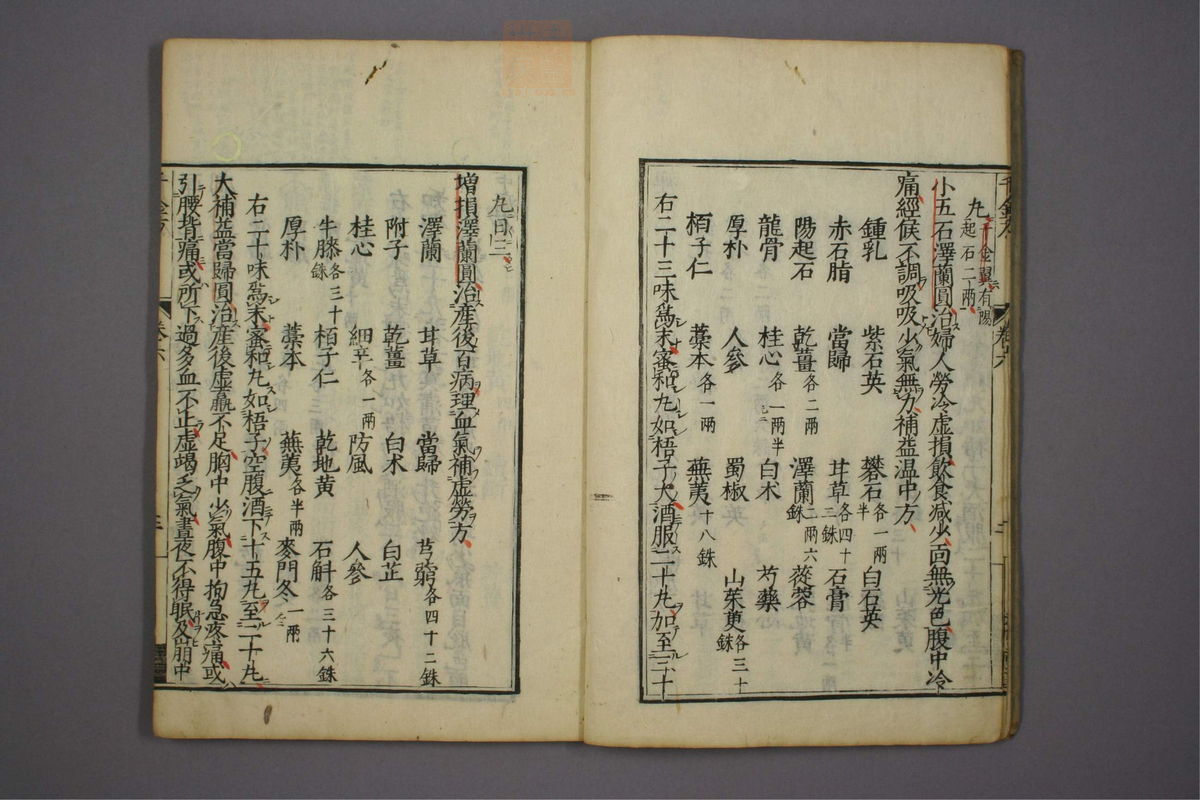 丸千金翼有陽起石二兩
小五石澤蘭圓治婦人勞冷虛損飲食減少面無光色腹中冷
痛經候不調吸吸少氣無力補益温中方
鍾乳 紫石英 礬石各一兩半 白石英
赤石脂 當歸 甘草各四十二銖 石膏
陽起石 乾薑各二兩 澤蘭二兩六銖 蓯蓉
龍骨 桂心各一兩半 白朮 芍藥
厚朴 人參 蜀椒 山茱萸各三十銖
栢子仁 藁本各一兩 蕪荑十八銖
右二十三味爲末蜜和丸如梧子大酒服二十丸加至三十
丸日三
增損澤蘭圓治產後百病理血氣補虛勞方
澤蘭 甘草 當歸 芎藭各四十二銖
附子 乾薑 白朮 白芷
桂心 細辛各一兩 防風 人參
牛膝各三十銖 栢子仁 乾地黄 石斛各三十六銖
厚朴 藁本 蕪荑各半兩 麥門冬一兩
右二十味爲末蜜和丸如梧子空腹酒下十五丸至二十丸
大補益當歸圓治產後虛羸不足胸中少氣腹中拘急疼痛或
引腰背痛或所下過多血不止虛竭乏氣晝夜不得眠及崩中
卷六